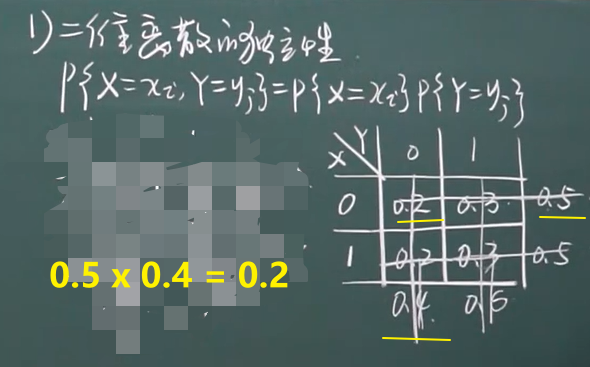 1) 二维离散的独立性
P{X=xi, Y=yj}=P{X=xi}P{Y=yj}
X Y 0 1
0 0.2 0.3 0.5
0.5 x 0.4 = 0.2
1 0.2 0.3 0.5
0.4 0.6